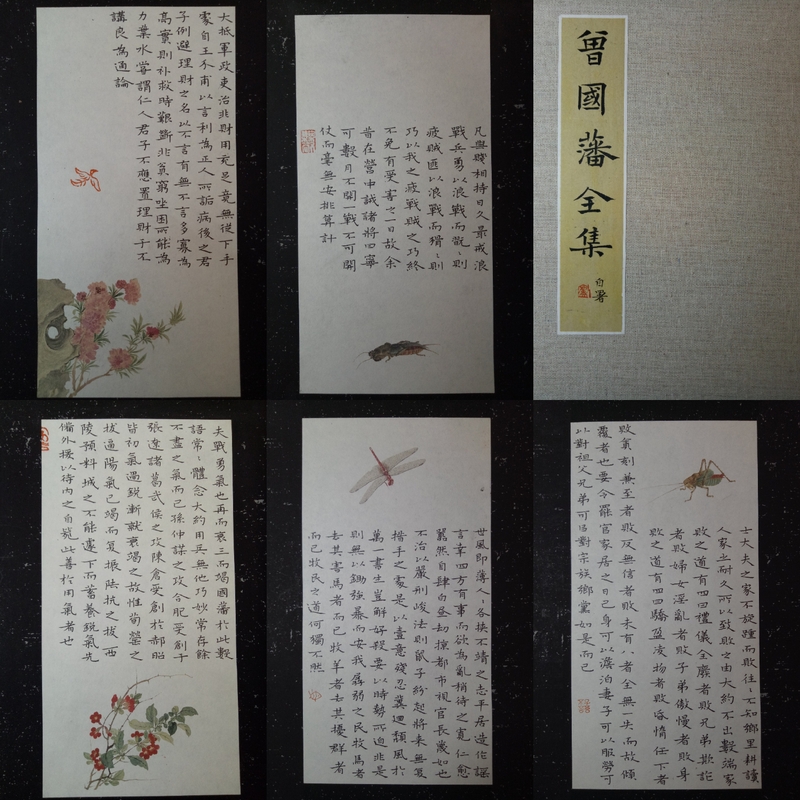 大抵軍政吏治非財用充足竟無從下手
處自王介甫以言利為正人所詬病後之君
子例避理財之名以不言有無不言多寡為
高實則補救時艱斷非貧窮坐困所能為
力葉水嘗謂仁人君子不應置理財于不
講良為通論
凡與賊相持日久最戒浪
戰兵勇以浪戰而翫〻則
疲賊匪以浪戰而猾〻則
巧以我之疲戰賊之巧終
不免有受害之一日故余
昔在營中誡諸將曰寧
可數月不開一戰不可開
仗而毫無安排算計
曾國藩全集
自署
夫戰勇氣也再而衰三而竭國藩於此數
語常〻體念大約用兵無他巧妙常存餘
不盡之氣而已孫仲謀之攻合肥受創于
張遼諸葛武侯之攻陳倉受創於郝昭
皆初氣過銳漸就衰竭之故惟荀罃之
拔逼陽氣已竭而復振陸抗之拔西
陵預料城之不能遽下而蓄養銳氣先
備外援以待內之自斃此善於用氣者也
世風即薄人〻各挾不靖之志平居造作謡
言幸四方有事而欲為亂稍待之寬仁愈
囂然自肆白晝劫掠都市視官長蔑如也
不治以嚴刑峻法則鼠子紛起將來無復
措手之處是以壹意殘忍冀迴頽風於
萬一書生豈解好殺要以時勢所迫非是
則無以鋤強暴而安我孱弱之民牧馬者
去其害馬者而已牧羊者去其擾群者
而已牧民之道何獨不然
士大夫之家不旋踵而敗往〻不如鄉里耕讀
人家之耐久所以致敗之由大約不出數端家
敗之道有四曰禮儀全廢者敗兄弟欺詐
者敗婦女淫亂者敗子弟傲慢者敗身
敗之道有四曰驕盈凌物者敗昏惰任下者
敗貪刻兼至者敗反無信者敗未有八者全無一失而故傾
覆者也要令罷官家居之日己身可以淡泊妻子可以服勞可
以對祖父兄弟可以對宗族鄉黨如是而已